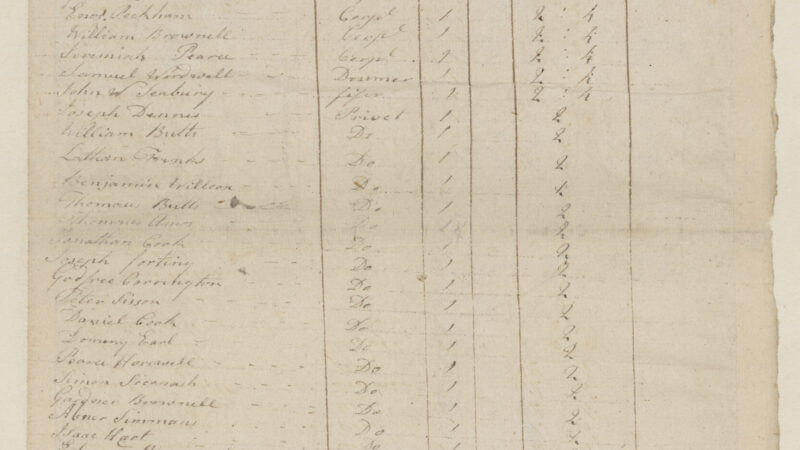 Enos Peckham Corpl 1 2 : 4
William Brownell Corpl 1 2 : 4
Jeremiah Pearce Corpl 1 2 : 4
Samuel Wordwell Drummer 1 2 : 4
John W Seabury fifer 1 2 : 4
Joseph Dennis Privet 1 2
William Butts Do 1 2
Do 1 2
Benjamin Willcox Do 1 2
Thomas Butts Do 1 2
Thomas Amos Do 1 2
Jonathan Cook Do 1 2
Joseph forting Do 1 2
Godfree Corrington Do 1 2
Peter Sisson Do 1 2
Daniel Cook Do 1 2
Earl Do 1 2
Pearce Do 1 2
Simon Do 1 2
Gardner Brownell Do 1 2
Abner Simmans Do 1 2
Isaac Hart Do 1 2